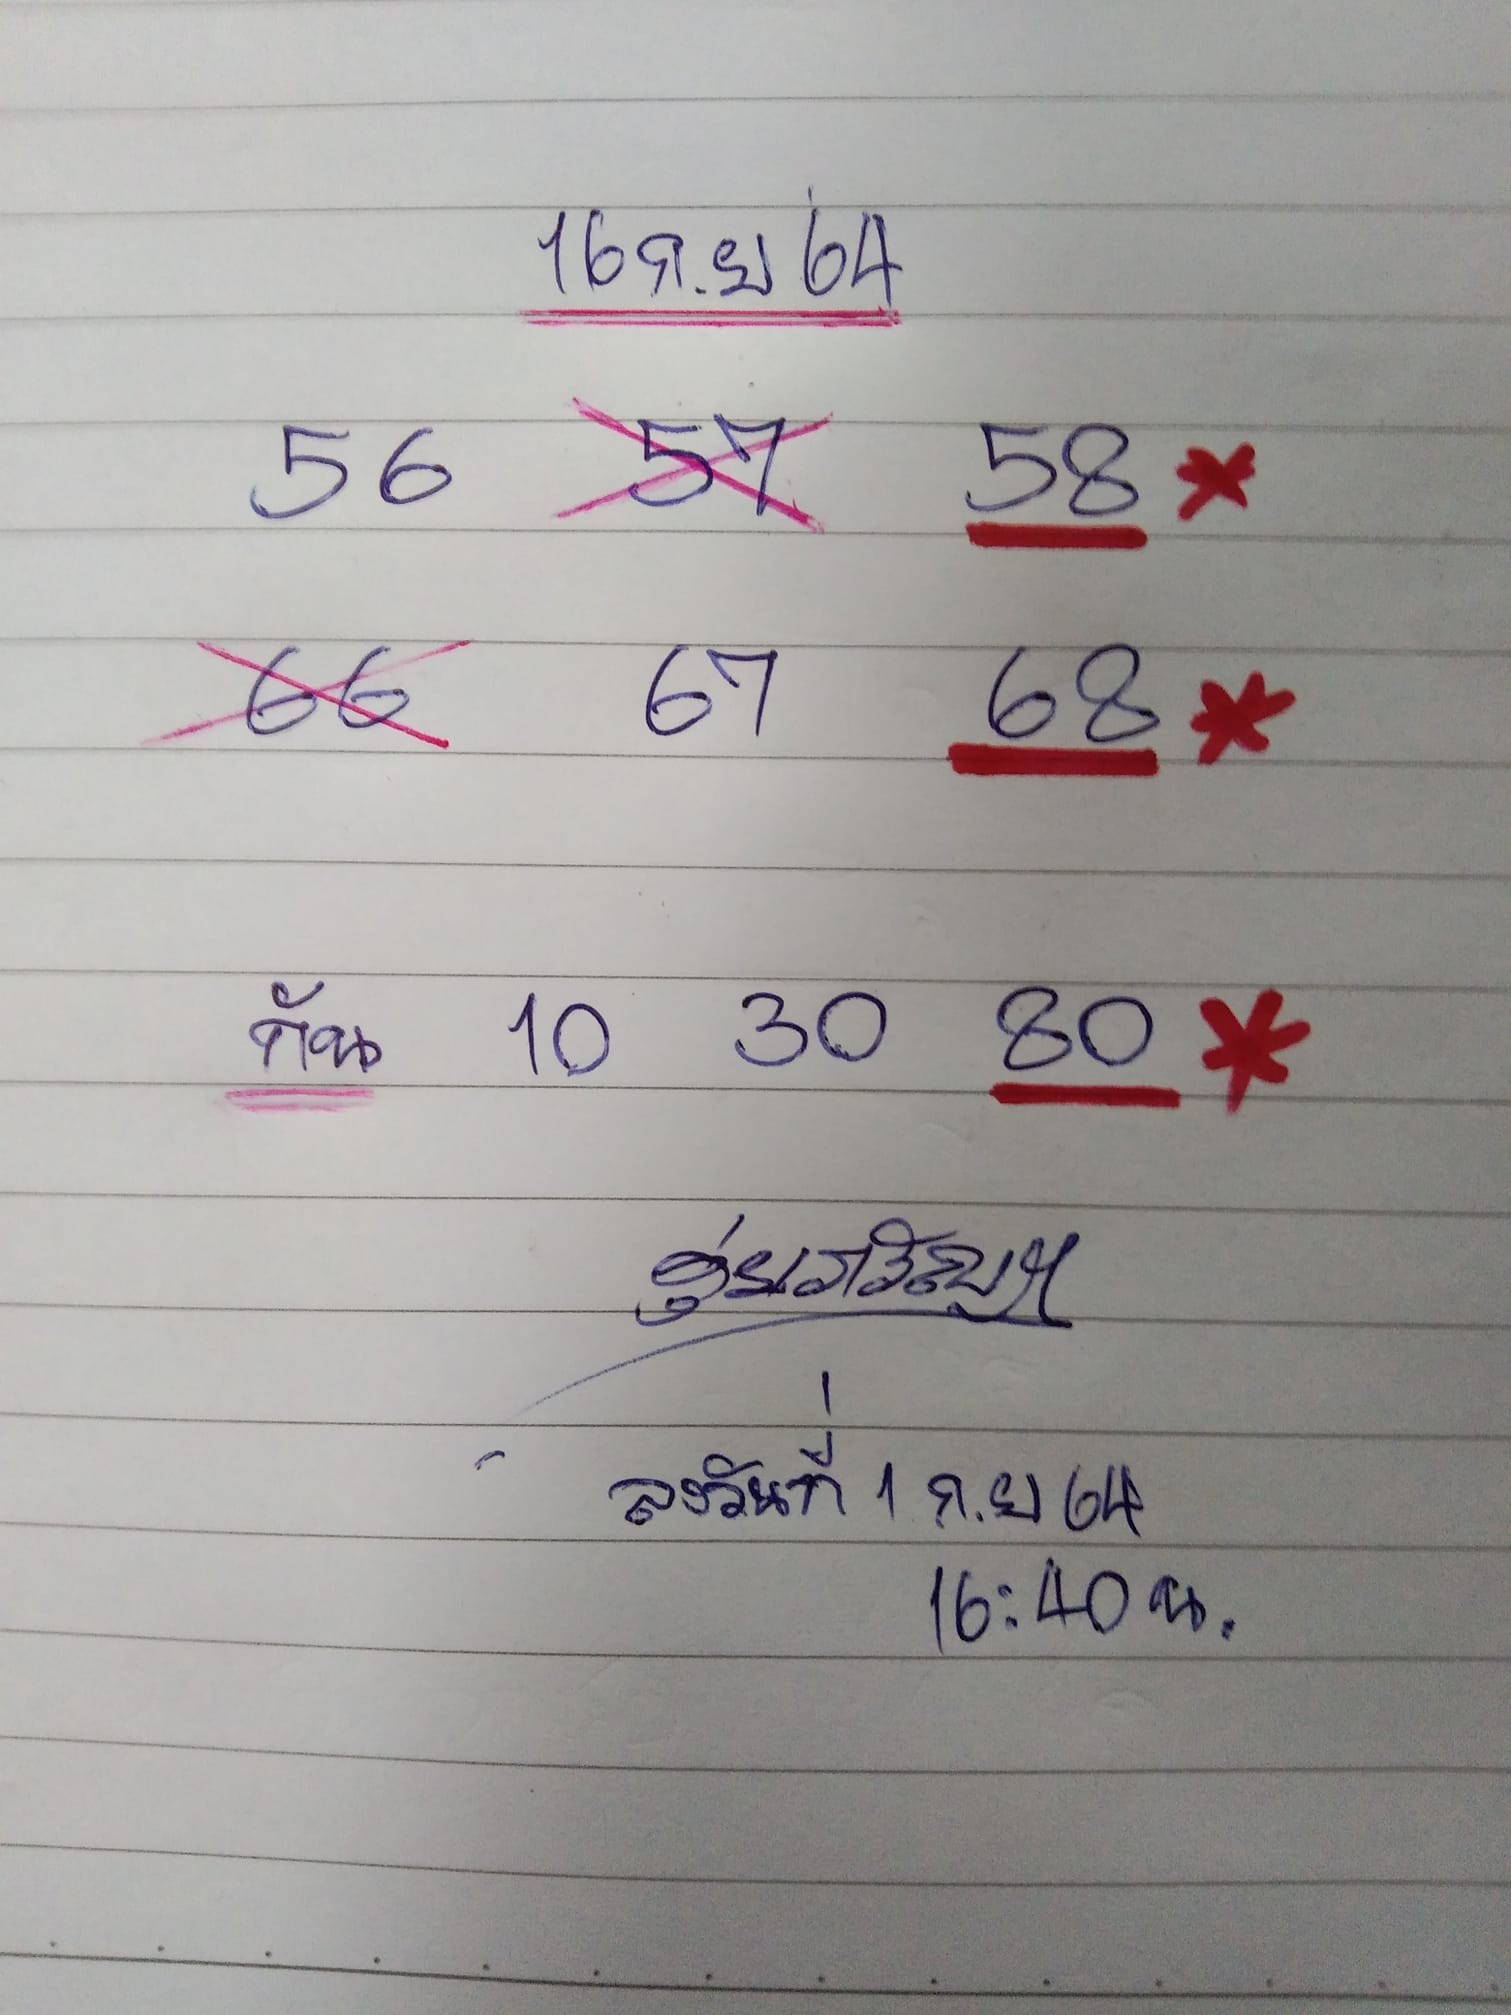 16 ก.ย 64
56 57 58
66 67 68
กัน 10 30 80
ลงวันที่ 1 ก.ย 64
16:40 น.